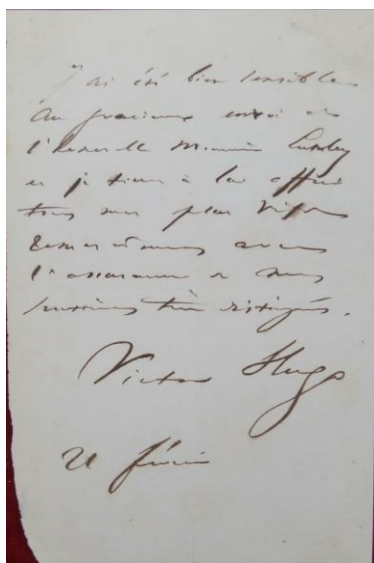 J'ai été bien sensible
au gracieux envoi de
l'honorable Monsieur Lumley
et je tiens à lui offrir
tous mes plus vifs
remerciements avec
l'assurance de mes
sentiments très distingués.
Victor Hugo
21 février